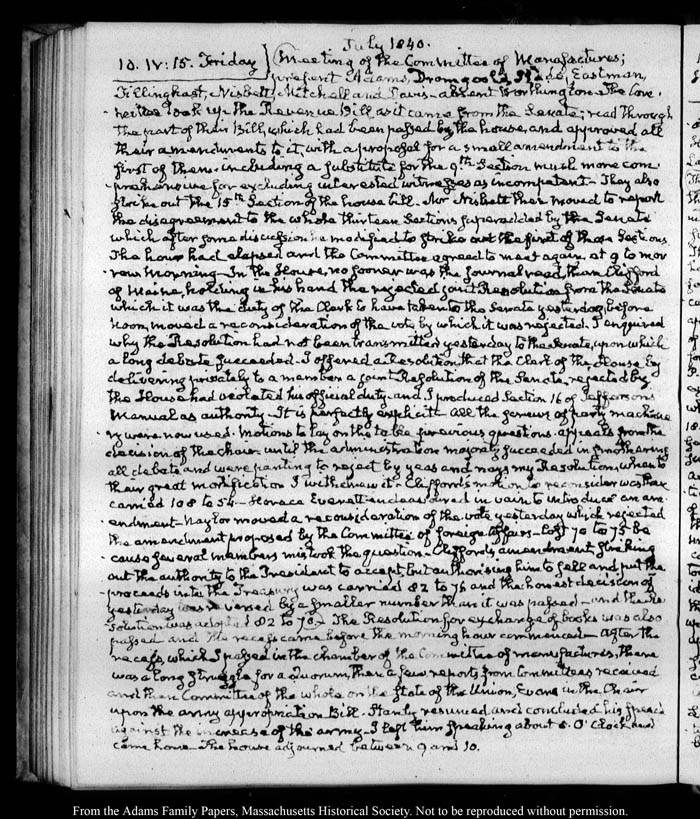 July 1840.
10. IV:15. Friday } Meeting of the Committee of Manufactures;
present Adams, Dromgoole, Slade, Eastman,
Tillinghast, Nisbett, Mitchell and Davis – absent Worthington. The Com-
mittee took up the Revenue Bill as it came from the Senate; read through
the part of their Bill, which had been passed by the house, and approved all
their amendments to it, with a proposal for a small amendment to the
first of them. including a substitute for the 9th. Section much more com-
prehensive for excluding interested witnesses as incompetent – They also
struck out the 15th. Section of the house bill. Mr Nisbett then moved to report
the disagreement to the whole thirteen Sections superadded by the Senate
which after some discussion he modified to strike out the first of those Sections
The hour had elapsed and the Committee agreed to meet again at 9 to mor-
row Morning – In the House, no sooner was the Journal read, than Clifford
of Maine, holding in his hand the rejected joint Resolution from the Senate
which it was the duty of the Clerk to have taken to the Senate yesterday, before
Noon, moved a reconsideration of the vote by which it was rejected. I enquired
why the Resolution had not been transmitted yesterday to the Senate, upon which
a long debate succeeded – I offered a Resolution that the Clerk of the House by
delivering privately to a member a joint Resolution of the Senate, rejected by
the House had violated his official duty – and I produced Section 16 of Jefferson's
Manual as authority – It is perfectly explicit – All the screws of party machine-
ry were now used. Motions to lay on the table previous questions. appeals from the
decision of the chair until the administration majority succeeded in smothering
all debate and were panting to reject by yeas and nays my Resolution, when to
their great mortification I withdrew it – Clifford's motion to reconsider was then
carried 108 to 54 – Horace Everett endeavoured in vain to introduce an am-
endment – Naylor moved a reconsideration of the vote yesterday which rejected
the amendment proposed by the Committee of foreign Affairs – Lost 70 to 75 be
cause several members mistook the question – Clifford's amendment, striking
out the authority to the President to accept, but authorising him to sell and put the
proceeds into the Treasury was carried 82 to 75 and the honest decision of
yesterday was reversed by a smaller number than it was passed – and the Re-
solution was adopted 82 to 70. – The Resolution for exchange of books was also
passed and the recess came before the morning hour commenced – After the
recess, which I passed in the chamber of the Committee of manufactures, there
was a long struggle for a quorum, then a few reports from Committees received
and then Committee of the whole on the State of the Union, Evans in the Chair
upon the army appropriation Bill. Stanly resumed and concluded his speech
against the increase of the army – I left him speaking about 5. O'Clock and
came home – The house adjourned between 9 and 10.
From the Adams Family Papers, Massachusetts Historical Society. Not to be reproduced without permission.